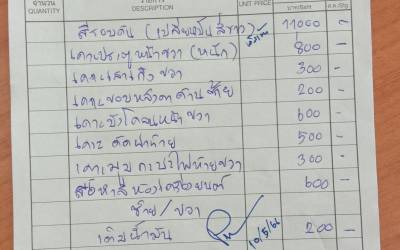 จำนวน รายการ
QUANTITY DESCRIPTION UNIT PRICE บาท/Baht ส.ต./Stg.
สีรอบคัน (เปลี่ยนเป็นสีขาว) 11000 -
เคาะประตูหน้าขวา (หนัก) 800 -
เคาะเสาเก๋งขวา 300 -
เคาะขอบหลังคาด้านซ้าย 200 -
เคาะบังโคลนหน้าขวา 600 -
เคาะ ตัดฝาท้าย 500 -
เคาะมุม กะบะไฟท้ายขวา 300 -
สีห้องเครื่องยนต์ 600 -
ซ้าย / ขวา
เติมน้ำมัน 10/5/61 200 -